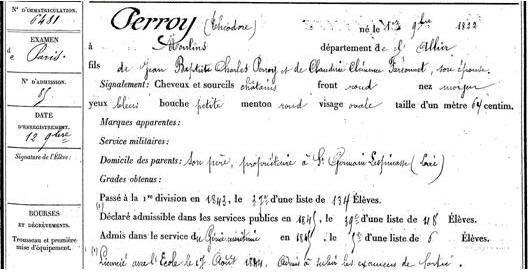 N° D'IMMATRICULATION.
6481
EXAMEN
de Paris.
N° D'ADMISSION.
85
DATE
D'ENREGISTREMENT.
12 9bre
Signature de l'Élève:
BOURSES
ET DÉGRÈVEMENTS.
Trousseau et première
mise d'équipement.
Perroy (Théodore) né le 13 9bre 1822
à Moulins département de l'Allier
fils de Jean Baptiste Charles Perroy et de Claudine Clémence Farconnet, son épouse.
Signalement: Cheveux et sourcils châtains front rond nez moyen
yeux bleus bouche petite menton rond visage ovale taille d'un mètre 64 centim.
Marques apparentes:
Service militaire:
Domicile des parents: Son père, propriétaire à St Germain Lespinasse (Loire)
Grades obtenus:
Passé à la 1re division en 1843, le 37e d'une liste de 134 Élèves.
(1)
Déclaré admissible dans les services publics en 1845, le d'une liste de Élèves.
Admis dans le service du Génie maritime en 1845 le d'une liste de 6 Élèves.
(1) Licencié avec l'École le 17 Août 1844. Admis à subir les examens de sortie.